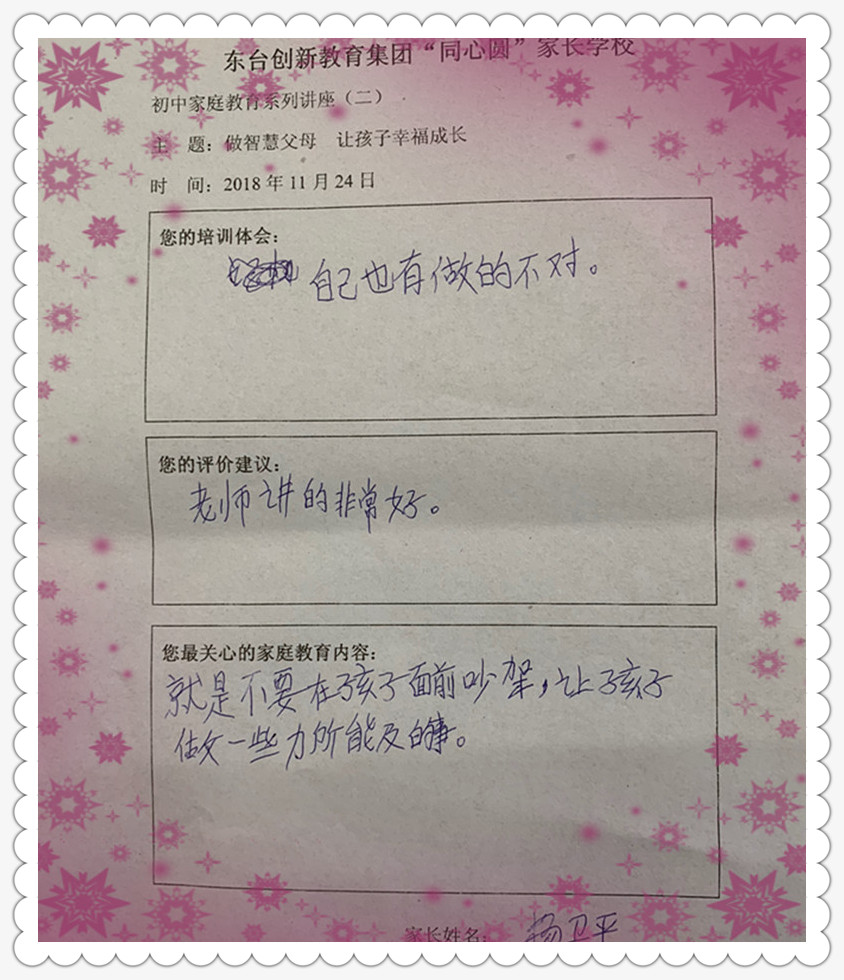 东台创新教育集团“同心圆”家长学校
初中家庭教育系列讲座（二）
主　题：做智慧父母　让孩子幸福成长
时　间：2018 年 11 月 24 日
您的培训体会：
自己也有做的不对。
您的评价建议：
老师讲的非常好。
您最关心的家庭教育内容：
就是不要在孩子面前吵架，让孩子
做一些力所能及的事。
家长姓名：杨卫平